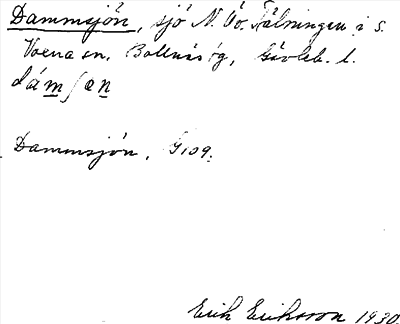 Dammsjön, sjö N. Öv. Fälningen i s.
Voxna sn. Bollnäs fg, Gävleb. l.
dámʃən
Dammsjön, G109.
Erik Eriksson 1930.